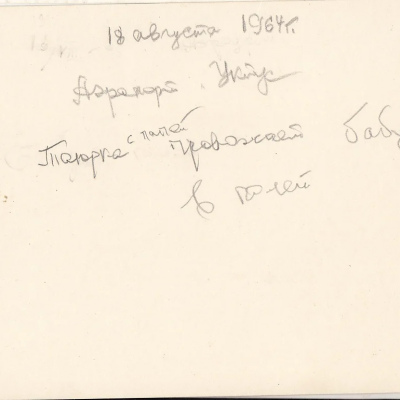 18 августа 1964г.
Аэропорт Уктус
Танюрка с папой провожает Баб
в полёт